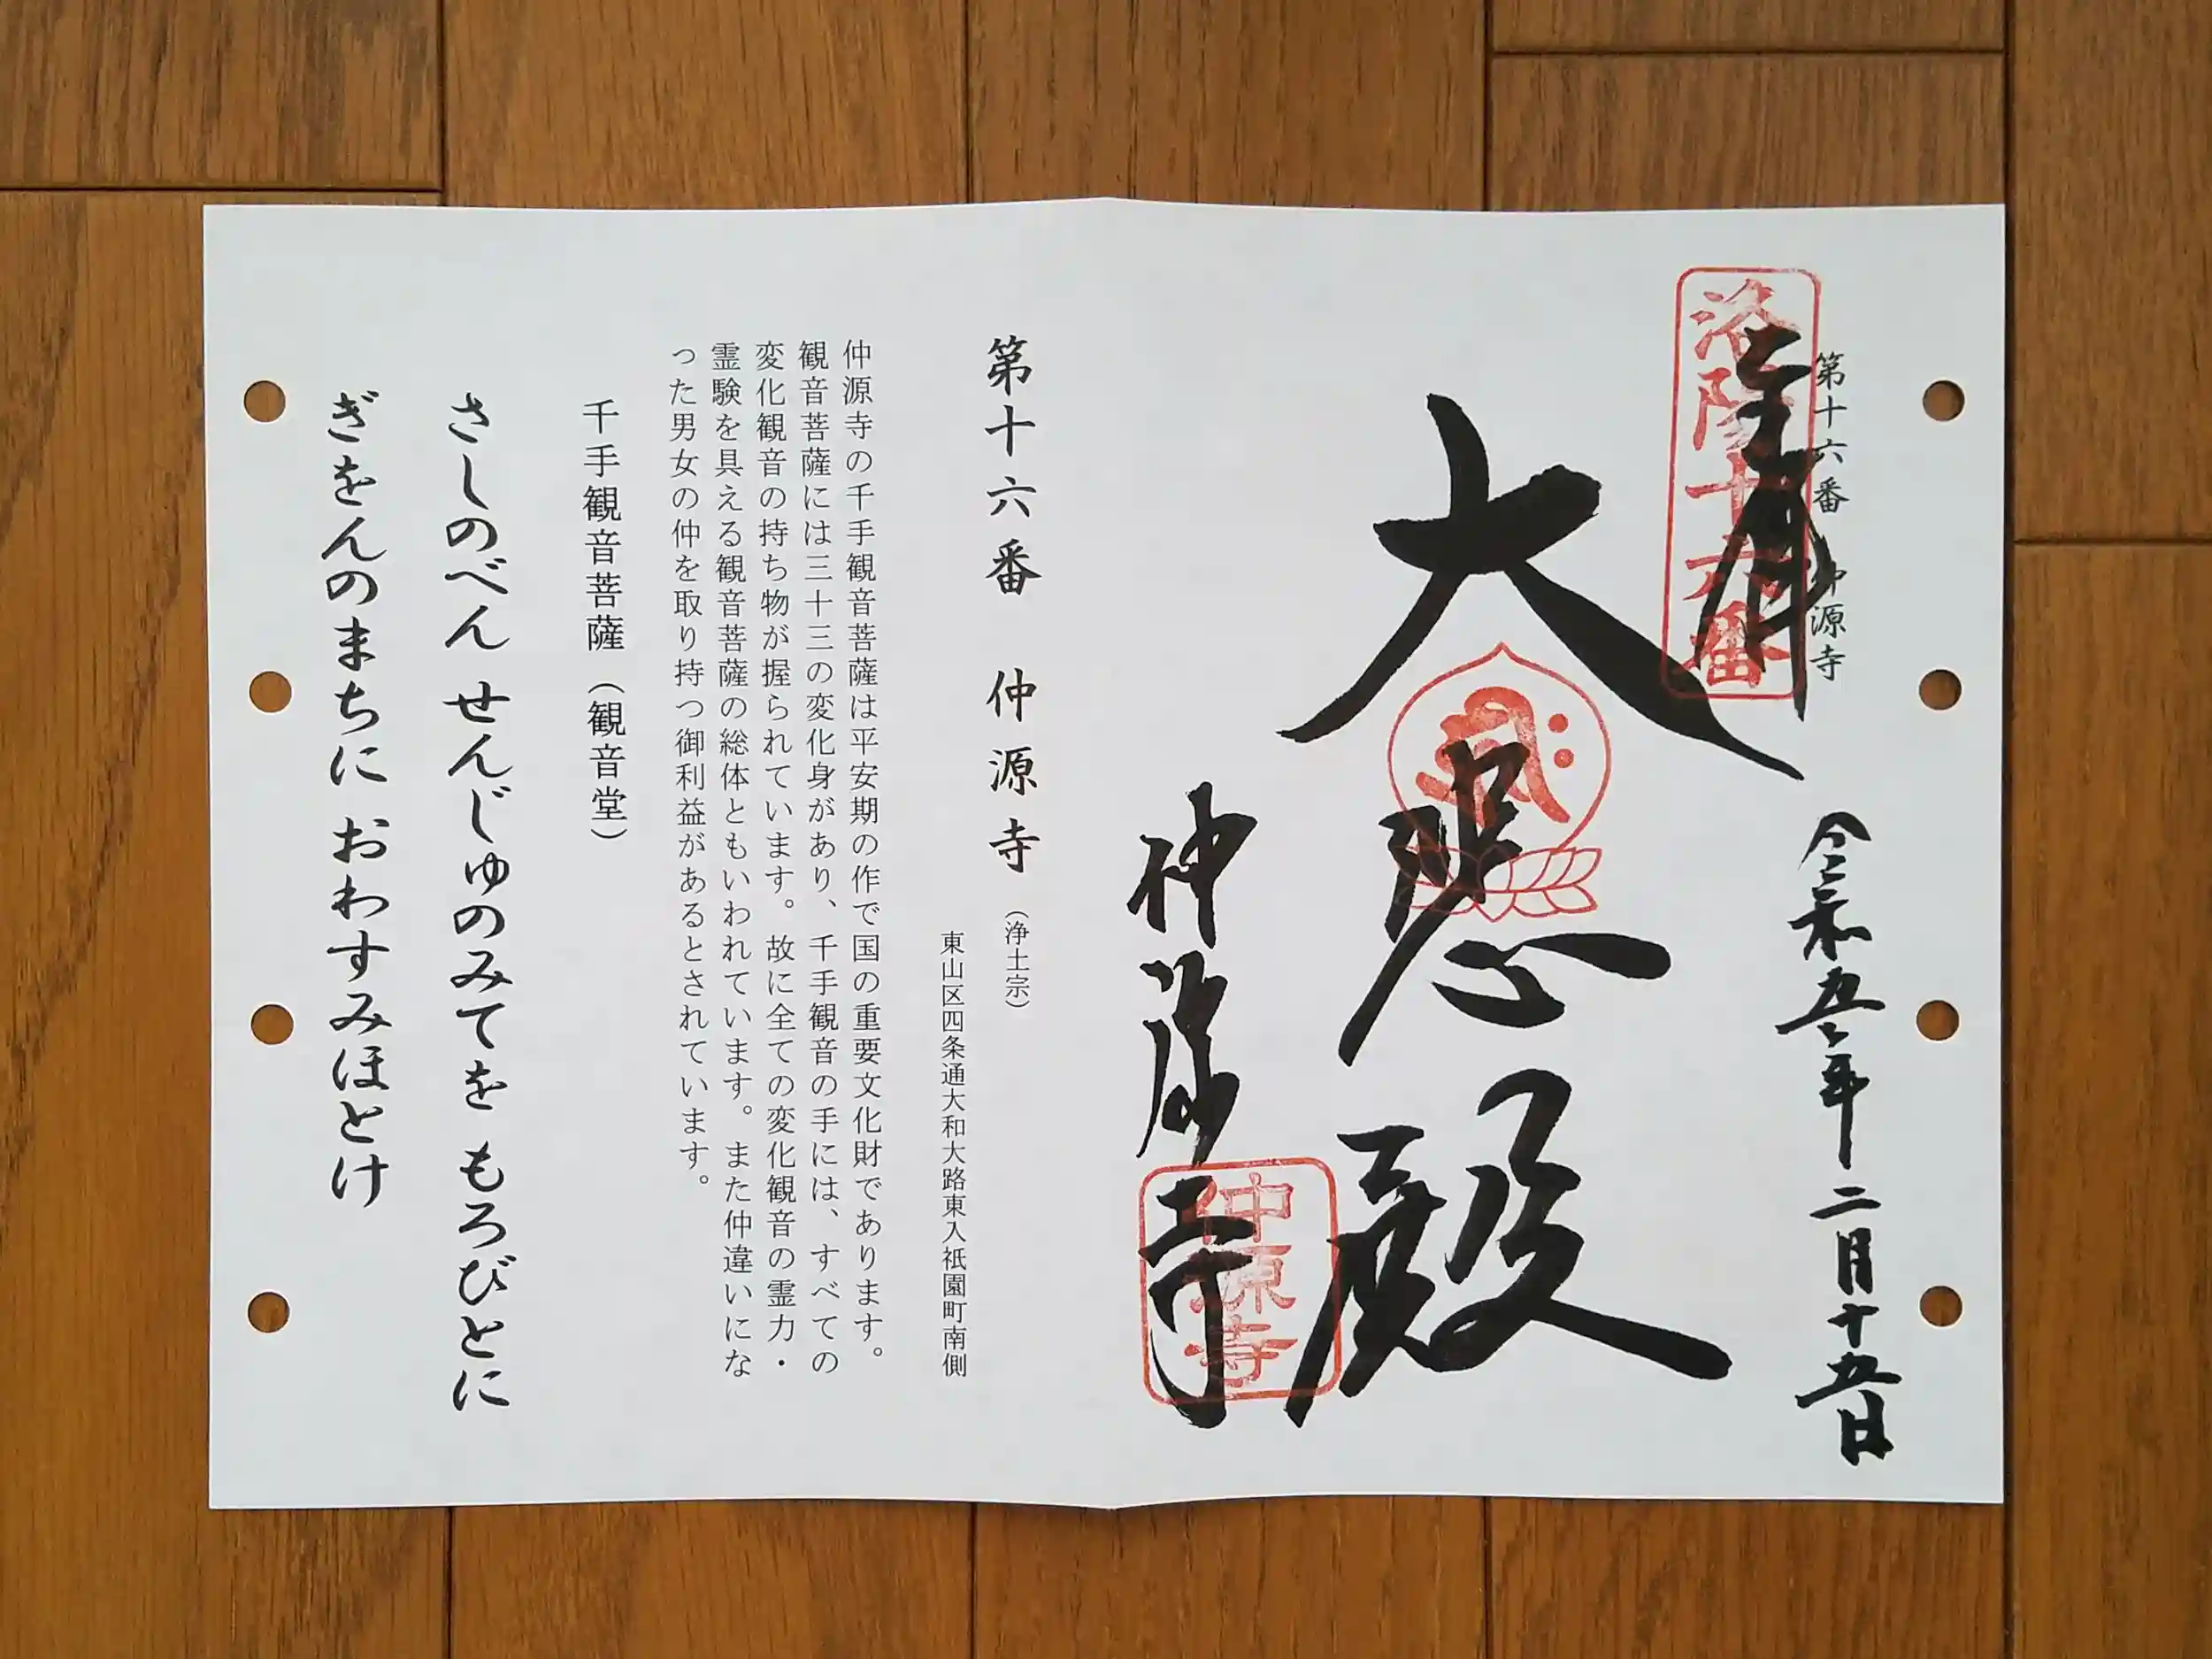 第十六番 仲源寺
奉拝
洛陽十六番
令和五年二月十五日
大悲殿
仲源寺
仲源寺
第十六番 仲源寺（浄土宗）
東山区四条通大和大路東入祇園町南側
仲源寺の千手観音菩薩は平安期の作で国の重要文化財であります。
観音菩薩には三十三の変化身があり、千手観音の手には、すべての
変化観音の持ち物が握られています。故に全ての変化観音の霊力・
霊験を具える観音菩薩の総体ともいわれています。また仲違いにな
った男女の仲を取り持つ御利益があるとされています。
千手観音菩薩（観音堂）
さしのべん せんじゅのみてを もろびとに
ぎをんのまちに おわすみほとけ